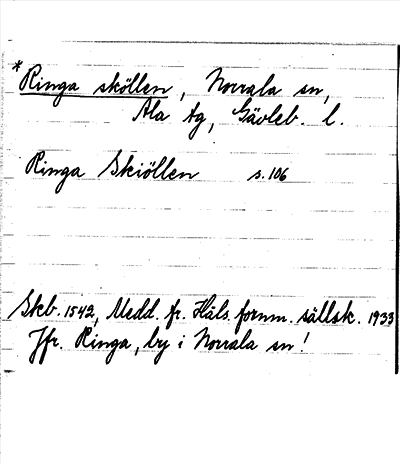 * Ringa sköllen, Norrala sn,
Ala tg, Gävleb. l.
Ringa Skiöllen s. 106
Skb. 1542, Medd. fr. Häls. fornm. sällsk. 1933
Jfr. Ringa, by i Norrala sn!